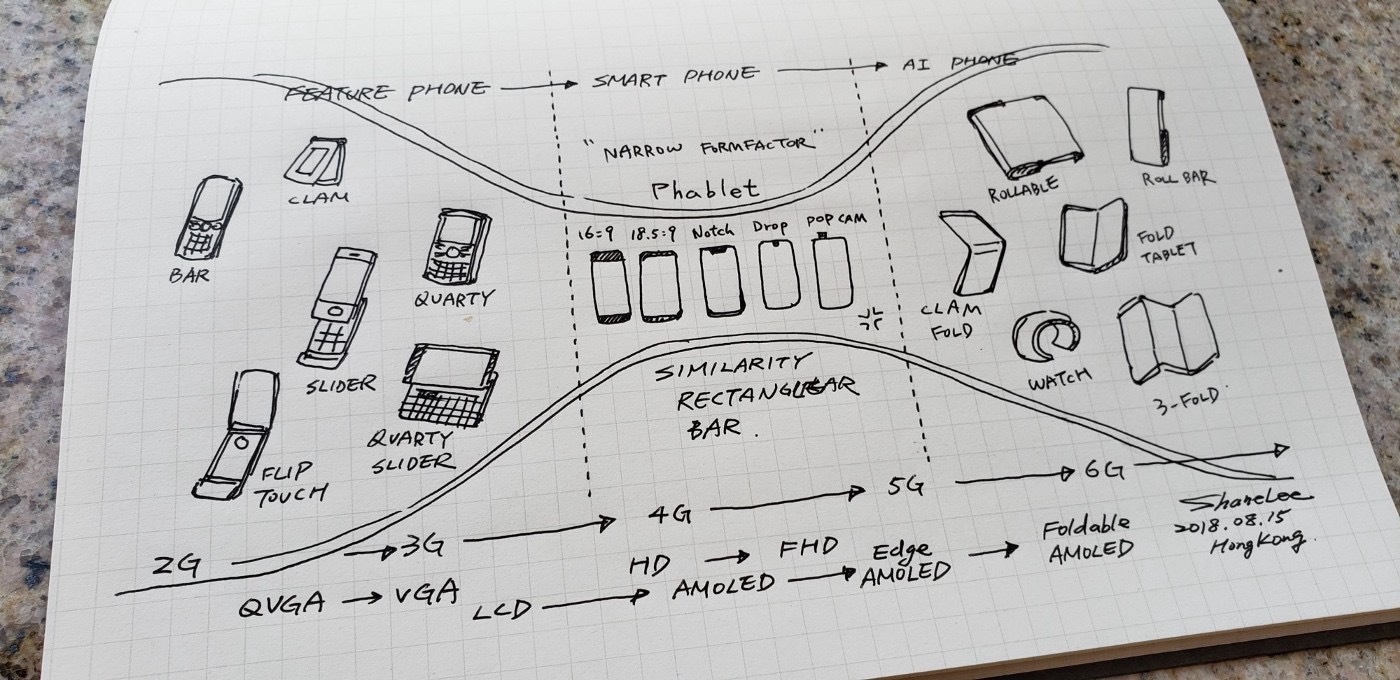 FEATURE PHONE → SMART PHONE → AI PHONE
"NARROW FORMFACTOR"
Phablet
CLAM
BAR
QUARTY
SLIDER
QUARTY
SLIDER
FLIP
TOUCH
16:9 18.5:9 Notch Drop POP CAM
SIMILARITY
RECTANGULAR
BAR.
ROLLABLE
ROLL BAR
FOLD
TABLET
CLAM
FOLD
WATCH
3-FOLD
2G → 3G → 4G → 5G → 6G
QVGA → VGA
HD → FHD
LCD → AMOLED → Edge
AMOLED → Foldable
AMOLED
ShaneLee
2018.08.15
HongKong.